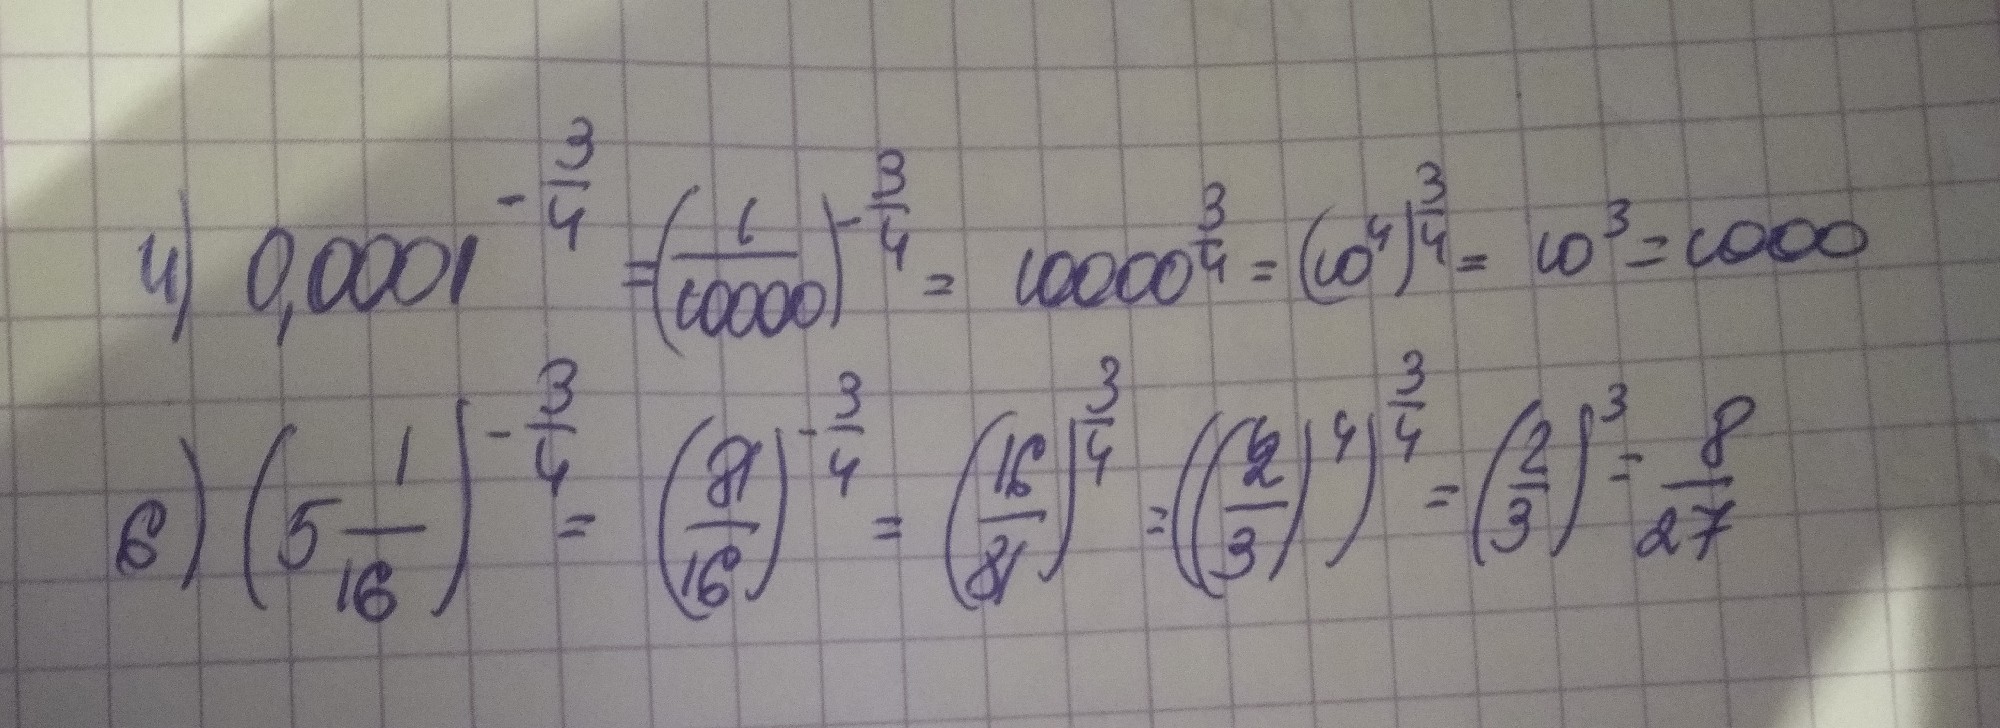 4) 0,0001^(-3/4) = (1/10000)^(-3/4) = 10000^(3/4) = (10^4)^(3/4) = 10^3 = 1000
6) (5 1/16)^(-3/4) = (81/16)^(-3/4) = (16/81)^(3/4) = ((2/3)^4)^(3/4) = (2/3)^3 = 8/27